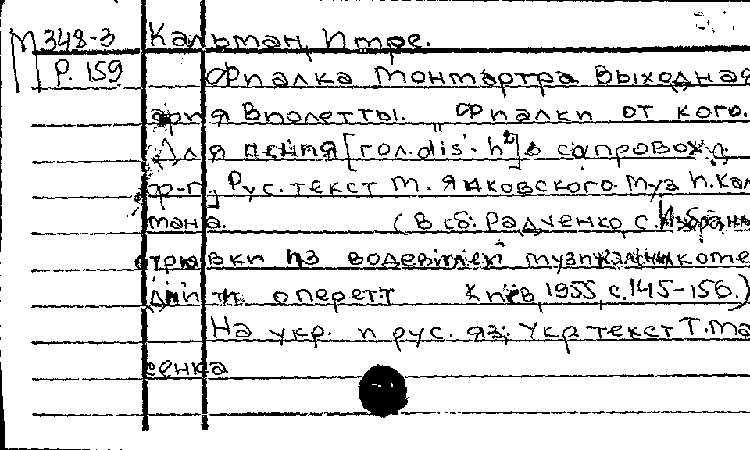 М 348-3 Кальман, Имре.
Р. 159 Фиалка Монтмартра Выходная
ария Виолетты. „Фиалки от кого.
Для пения [гол. dis'-h²] в сопровожд.
ф-п., Рус. текст М. Янковского. Муз И. Каль
мана. (В сб: Радченко, С. Избранны
отрывки из водевилей музикальн коме
дий и оперетт Киев, 1955, с. 145-156.)
На укр. и рус. яз; Укр текст Т. Ма
сенка